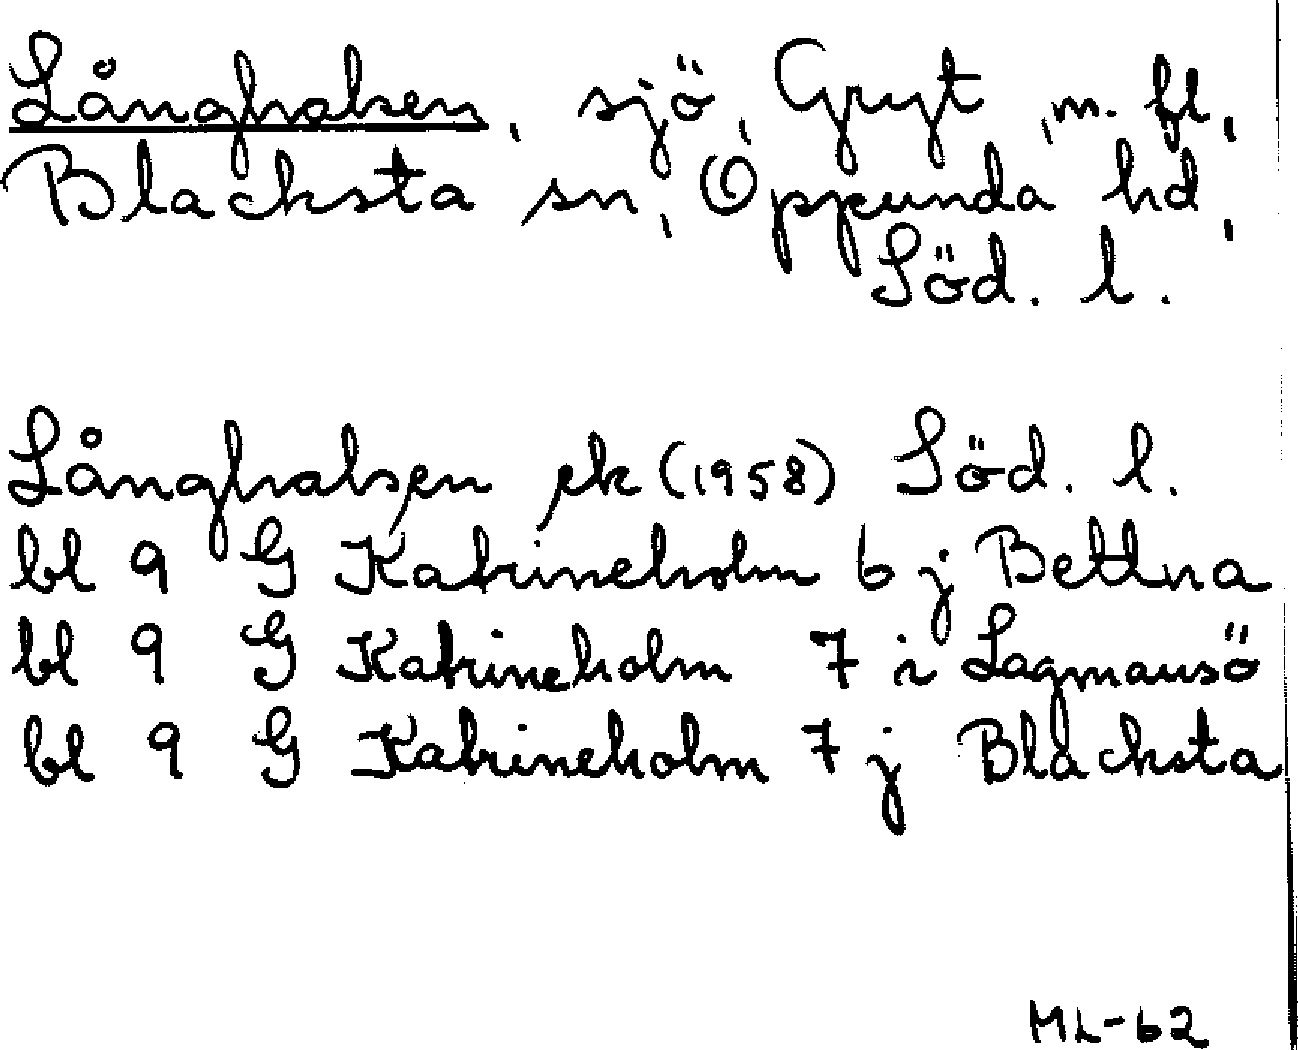 Långhalsen, sjö, Gryt, m. fl,
Blacksta sn, Oppunda hd,
Söd. l.
Långhalsen ek (1958) Söd. l.
bl 9 G Katrineholm 6 j Bettna
bl 9 G Katrineholm 7 i Lagmansö
bl 9 G Katrineholm 7 j Blacksta
ML-62